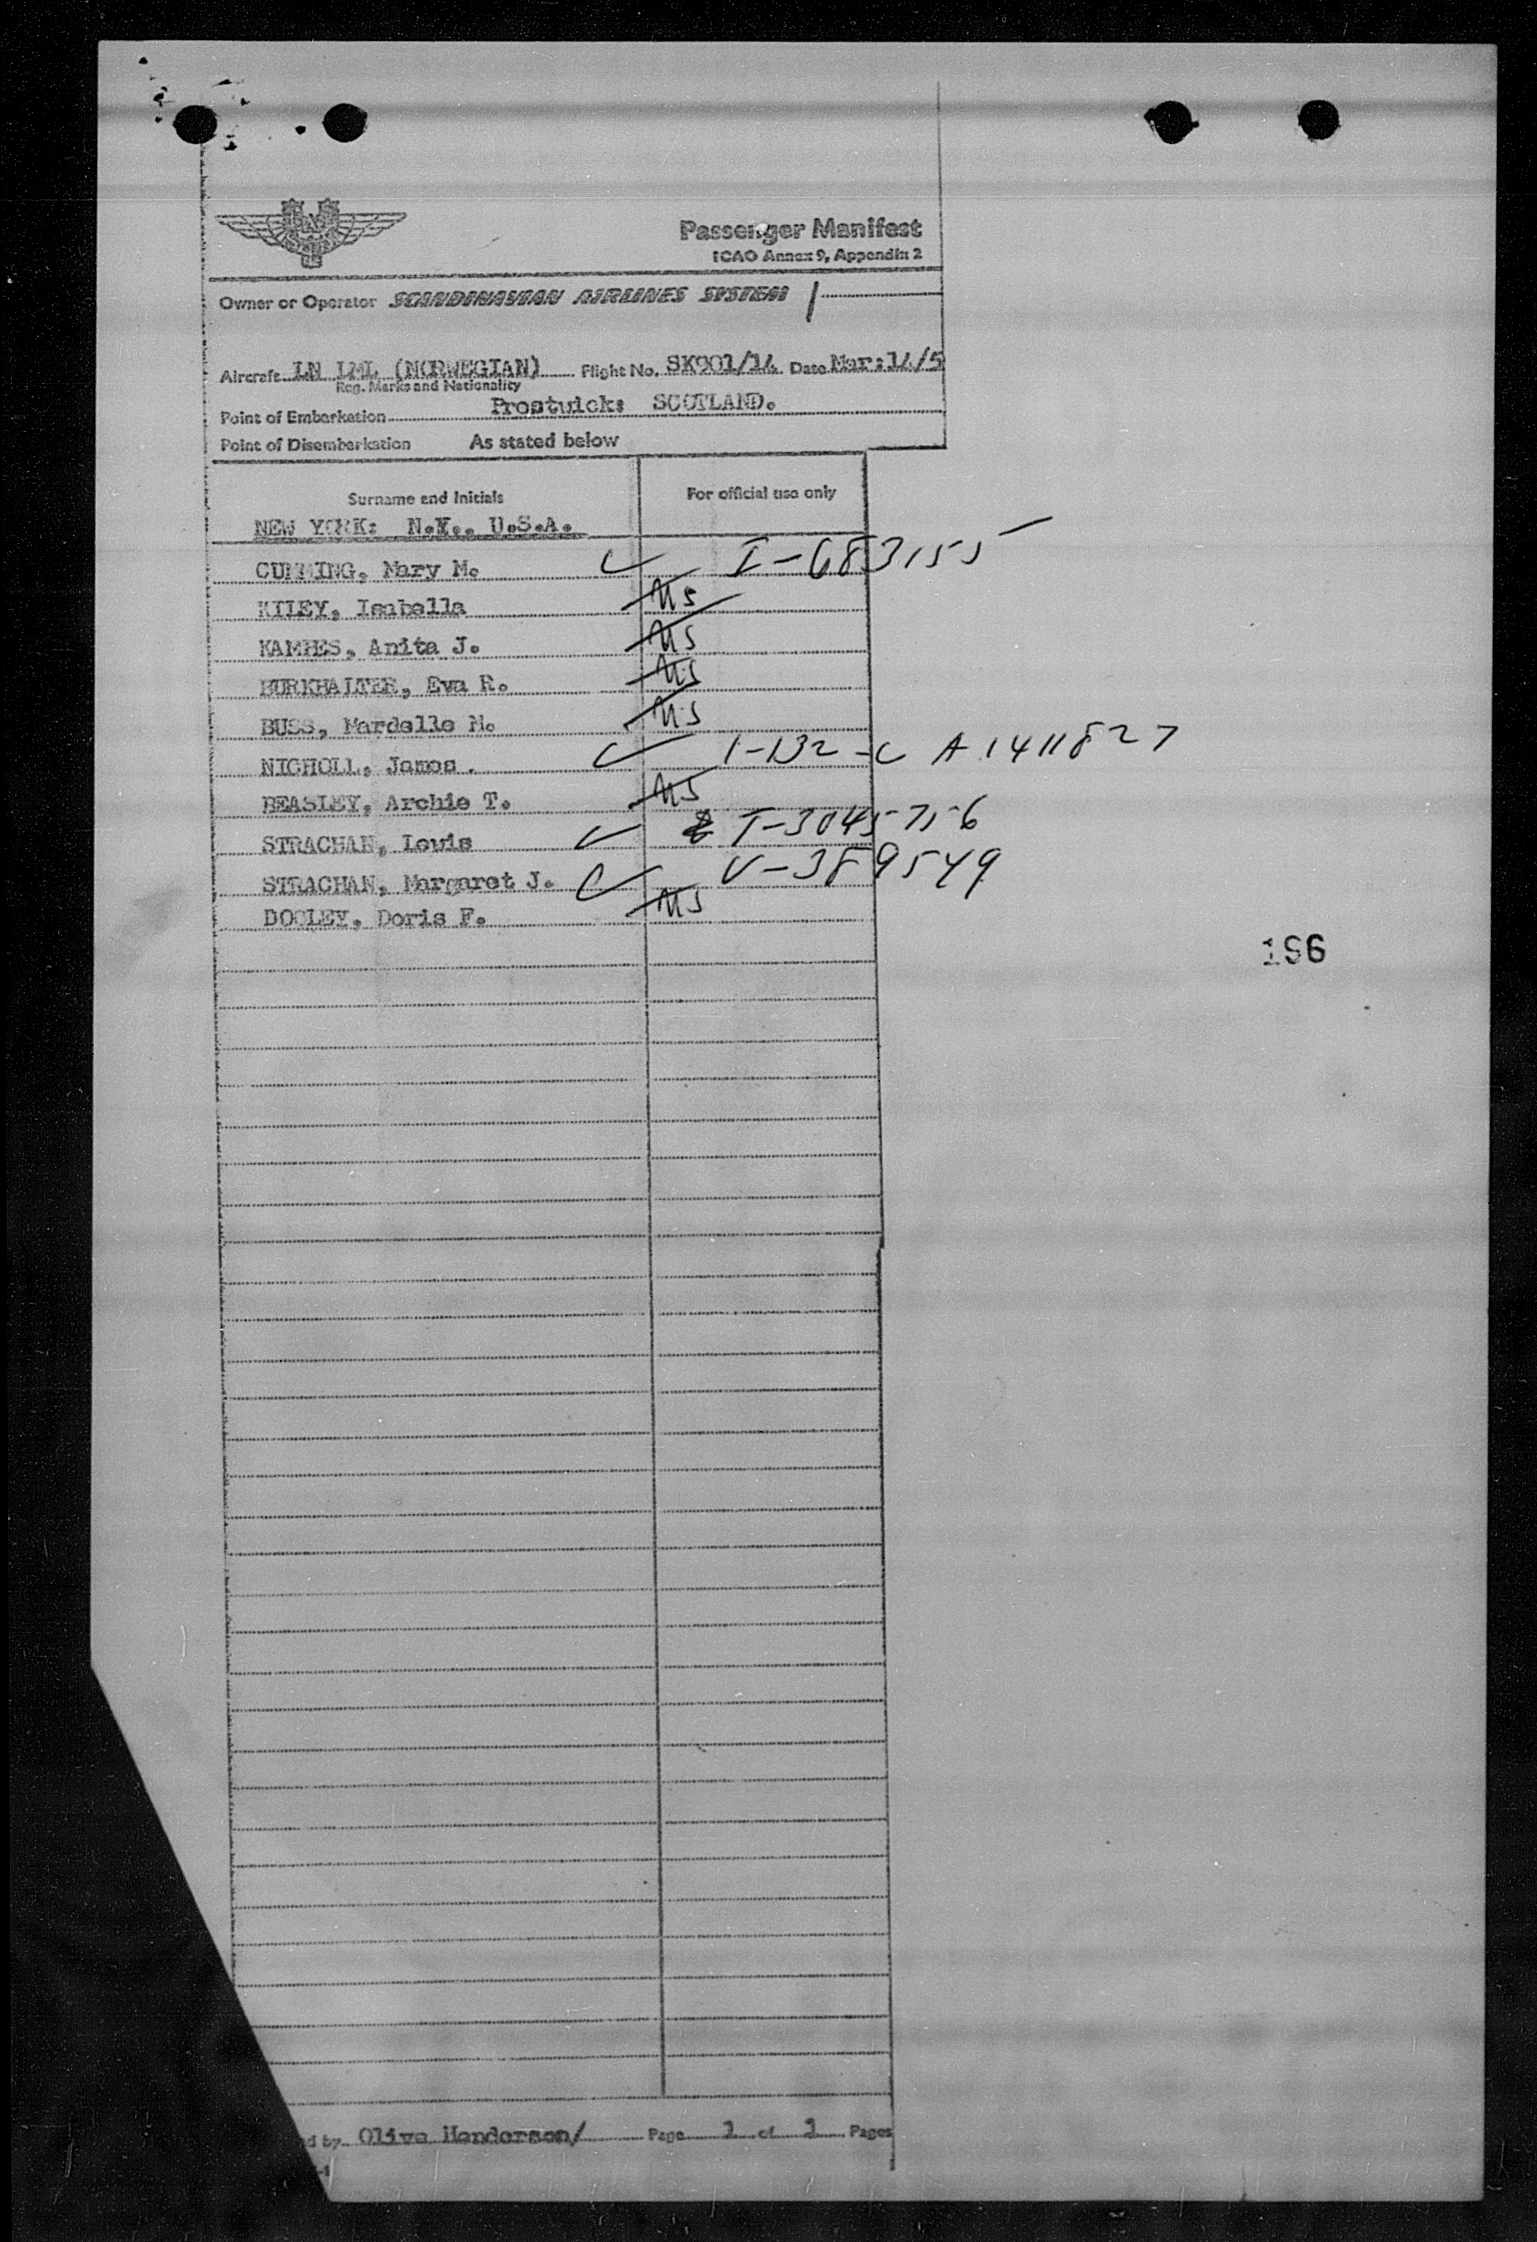 Passenger Manifest
ICAO Annex 9, Appendix 2
Owner or Operator SCANDINAVIAN AIRLINES SYSTEM
Aircraft LN LML (NORWEGIAN) Flight No. SK901/14 Date Mar:14/5
Reg. Marks and Nationality
Point of Embarkation Prestwick: SCOTLAND.
Point of Disembarkation As stated below
Surname and Initials For official use only
NEW YORK: N.Y., U.S.A.
CUMMING, Mary M. I-683155
KILEY, Isabella US
KAMPES, Anita J. US
BURKHALTER, Eva R. US
BUSS, Mardelle M. US
NICHOLL, James. I-132-C A1411827
BEASLEY, Archie T. US
STRACHAN, Louis I-3045756
STRACHAN, Margaret J. V-389549
DOOLEY, Doris F. US
196
ed by Olive Henderson/ Page of Pages